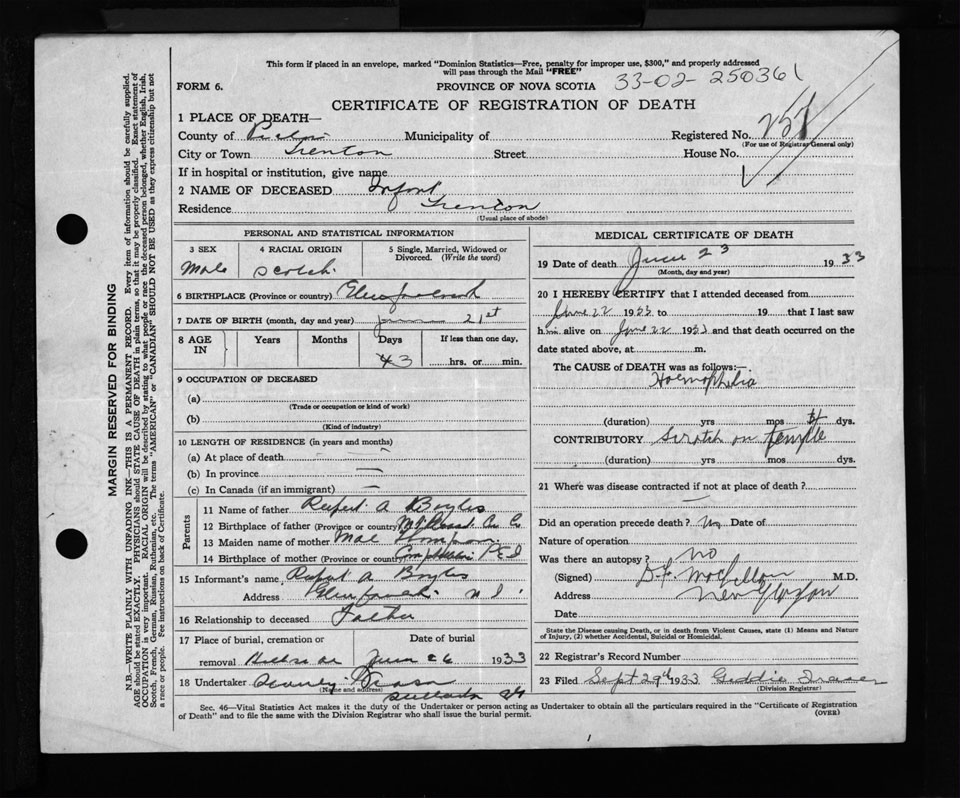 This form if placed in an envelope, marked "Dominion Statistics—Free, penalty for improper use, $300," and properly addressed
will pass through the Mail "FREE"
FORM 6. PROVINCE OF NOVA SCOTIA 33-02-250361
CERTIFICATE OF REGISTRATION OF DEATH
1 PLACE OF DEATH—
County of Municipality of Registered No. 257
(For use of Registrar General only)
City or Town Trenton Street House No.
If in hospital or institution, give name
2 NAME OF DECEASED Infant
Residence Trenton
(Usual place of abode)
PERSONAL AND STATISTICAL INFORMATION
3 SEX 4 RACIAL ORIGIN 5 Single, Married, Widowed or Divorced. (Write the word)
Male Scotch
6 BIRTHPLACE (Province or country)
7 DATE OF BIRTH (month, day and year) 21st
8 AGE IN Years Months Days If less than one day,
3 hrs. or min.
9 OCCUPATION OF DECEASED
(a)
(Trade or occupation or kind of work)
(b)
(Kind of industry)
10 LENGTH OF RESIDENCE (in years and months)
(a) At place of death —
(b) In province —
(c) In Canada (if an immigrant) —
Parents
11 Name of father Rupert A Boyles
12 Birthplace of father (Province or country)
13 Maiden name of mother Mae Thompson
14 Birthplace of mother (Province or country) P E I
15 Informant's name Rupert A Boyles
Address N S.
16 Relationship to deceased Father
17 Place of burial, cremation or Date of burial
removal June 26 1933
18 Undertaker
(Name and address)
MEDICAL CERTIFICATE OF DEATH
19 Date of death June 23 1933
(Month, day and year)
20 I HEREBY CERTIFY that I attended deceased from
June 22 1933 to 19 that I last saw
him alive on June 22 1933 and that death occurred on the
date stated above, at m.
The CAUSE of DEATH was as follows:—
Haemophelia
(duration) yrs mos dys.
CONTRIBUTORY Scratch on temple
(duration) yrs mos dys.
21 Where was disease contracted if not at place of death?
—
Did an operation precede death? no Date of
Nature of operation
Was there an autopsy? no
(Signed) M.D.
Address New Glasgow
Date
State the Disease causing Death, or in death from Violent Causes, state (1) Means and Nature
of Injury, (2) whether Accidental, Suicidal or Homicidal.
22 Registrar's Record Number
23 Filed Sept 29th 1933 Fraser
(Division Registrar)
Sec. 46—Vital Statistics Act makes it the duty of the Undertaker or person acting as Undertaker to obtain all the particulars required in the "Certificate of Registration
of Death" and to file the same with the Division Registrar who shall issue the burial permit. (OVER)
MARGIN RESERVED FOR BINDING
N.B.—WRITE PLAINLY WITH UNFADING INK—THIS IS A PERMANENT RECORD. Every item of information should be carefully supplied.
AGE should be stated EXACTLY. PHYSICIANS should STATE CAUSE OF DEATH in plain terms, so that it may be properly classified. Exact statement of
OCCUPATION is very important. RACIAL ORIGIN will be described by stating to what people or race the deceased person belonged, whether English, Irish,
Scotch, French, German, Russian, Ruthenian, etc. The terms "AMERICAN" or "CANADIAN" SHOULD NOT BE USED as they express citizenship but not
a race or people. See instructions on back of Certificate.